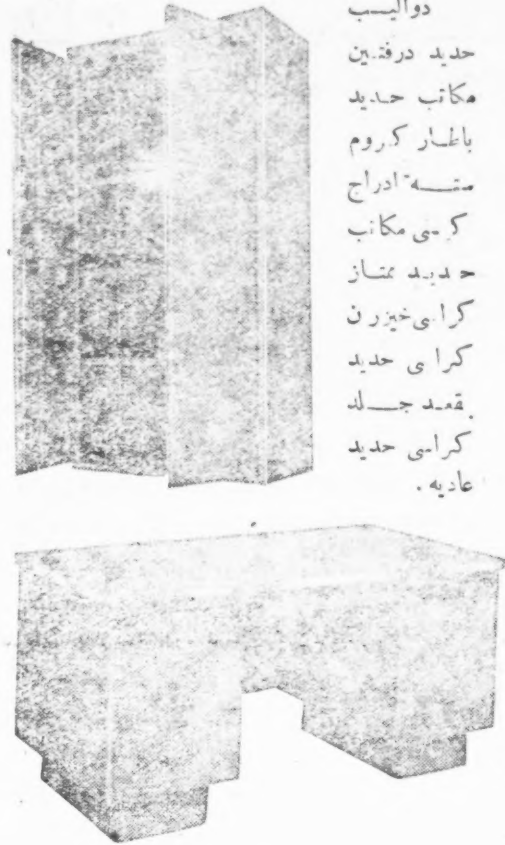 دواليب
حديد درفتين
مكاتب حديد
باطار كروم
ستة ادراج
كرسى مكاتب
حديد ممتاز
كراسى خيزرن
كراسى حديد
بقعد جلد
كراسى حديد
عاديه .